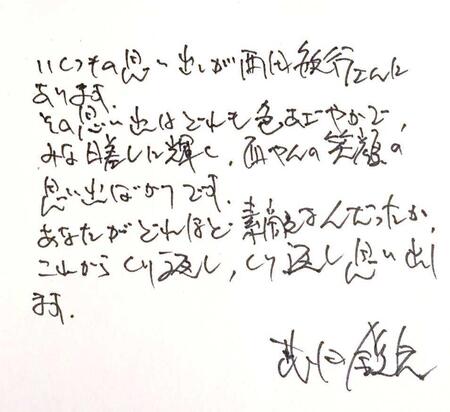 いくつもの思い出しが西田敏行さんに
あります。
その思い出はどれも色あざやかで、
みな日差しに輝く、西やんの笑顔の
思い出ばかりです。
あなたがどれほど素敵なんだったか、
これからくり返し、くり返し思い出し
ます。
武田鉄矢